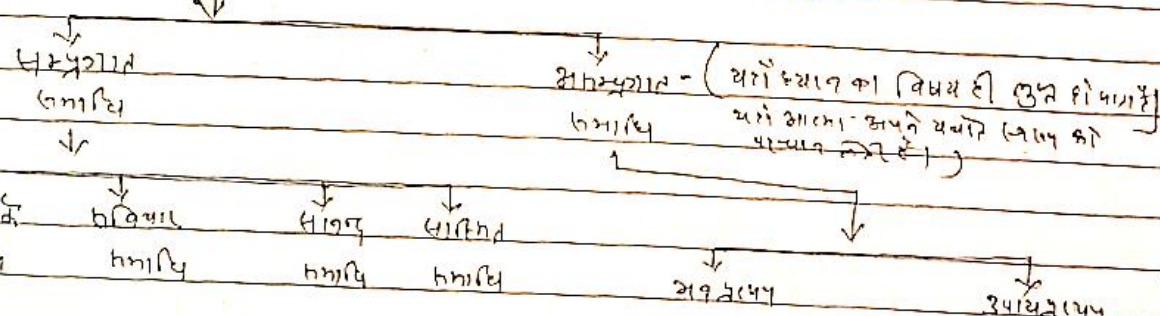 सम्प्रज्ञात
समाधि
असम्प्रज्ञात - ( यहाँ ध्यान का विषय ही लुप्त हो जाता है।
समाधि
यहाँ आत्मा - अपने यथार्थ स्वरूप को
पहचान लेता है। )
र्क सविचार सानन्द सास्मित
समाधि समाधि समाधि
भवप्रत्यय उपायप्रत्यय